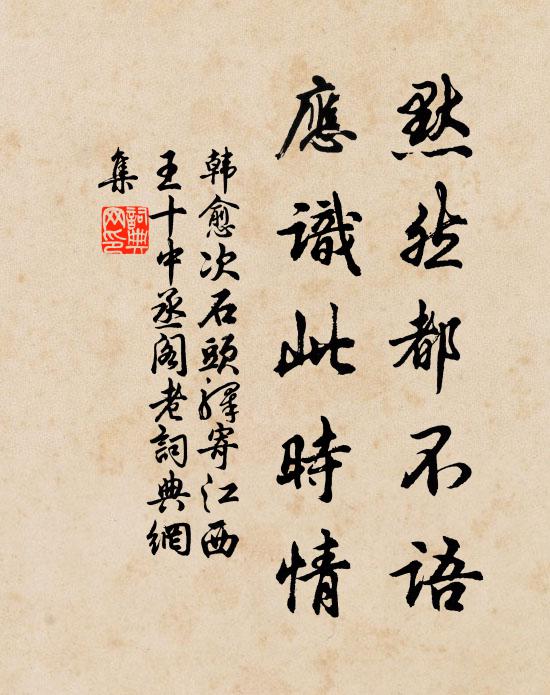 默然都不語
應識此時情
韓愈次石頭驛寄江西
王十中丞閣老詞典網
集
詞典
网印